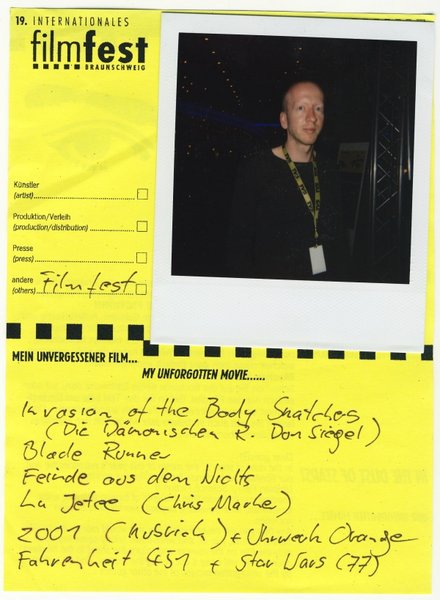 19. INTERNATIONALES
filmfest
BRAUNSCHWEIG
Künstler
(artist)
Produktion/Verleih
(production/distribution)
Presse
(press)
andere
(others) Filmfest
MEIN UNVERGESSENER FILM...
MY UNFORGOTTEN MOVIE......
Invasion of the Body Snatches
(Die Dämonischen R. Don Siegel)
Blade Runner
Feinde aus dem Nichts
La Jetee (Chris Marker)
2001 (Kubrick) + Uhrwerk Orange
Fahrenheit 451 + Star Wars (77)